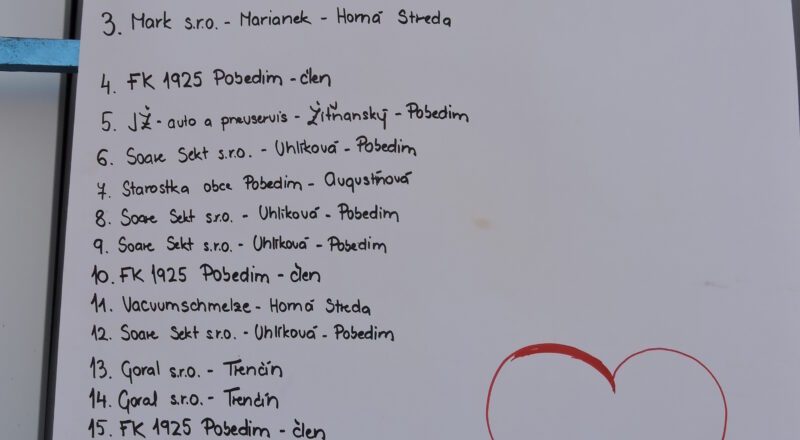 3. Mark s.r.o. - Marianek - Horná Streda
4. FK 1925 Pobedim - člen
5. JŽ - auto a pneuservis - Žitňanský - Pobedim
6. Soare Sekt s.r.o. - Uhlíková - Pobedim
7. Starostka obce Pobedim - Augustínová
8. Soare Sekt s.r.o. - Uhlíková - Pobedim
9. Soare Sekt s.r.o. - Uhlíková - Pobedim
10. FK 1925 Pobedim - člen
11. Vacuumschmelze - Horná Streda
12. Soare Sekt s.r.o. - Uhlíková - Pobedim
13. Goral s.r.o. - Trenčín
14. Goral s.r.o. - Trenčín
15. FK 1925 Pobedim - člen